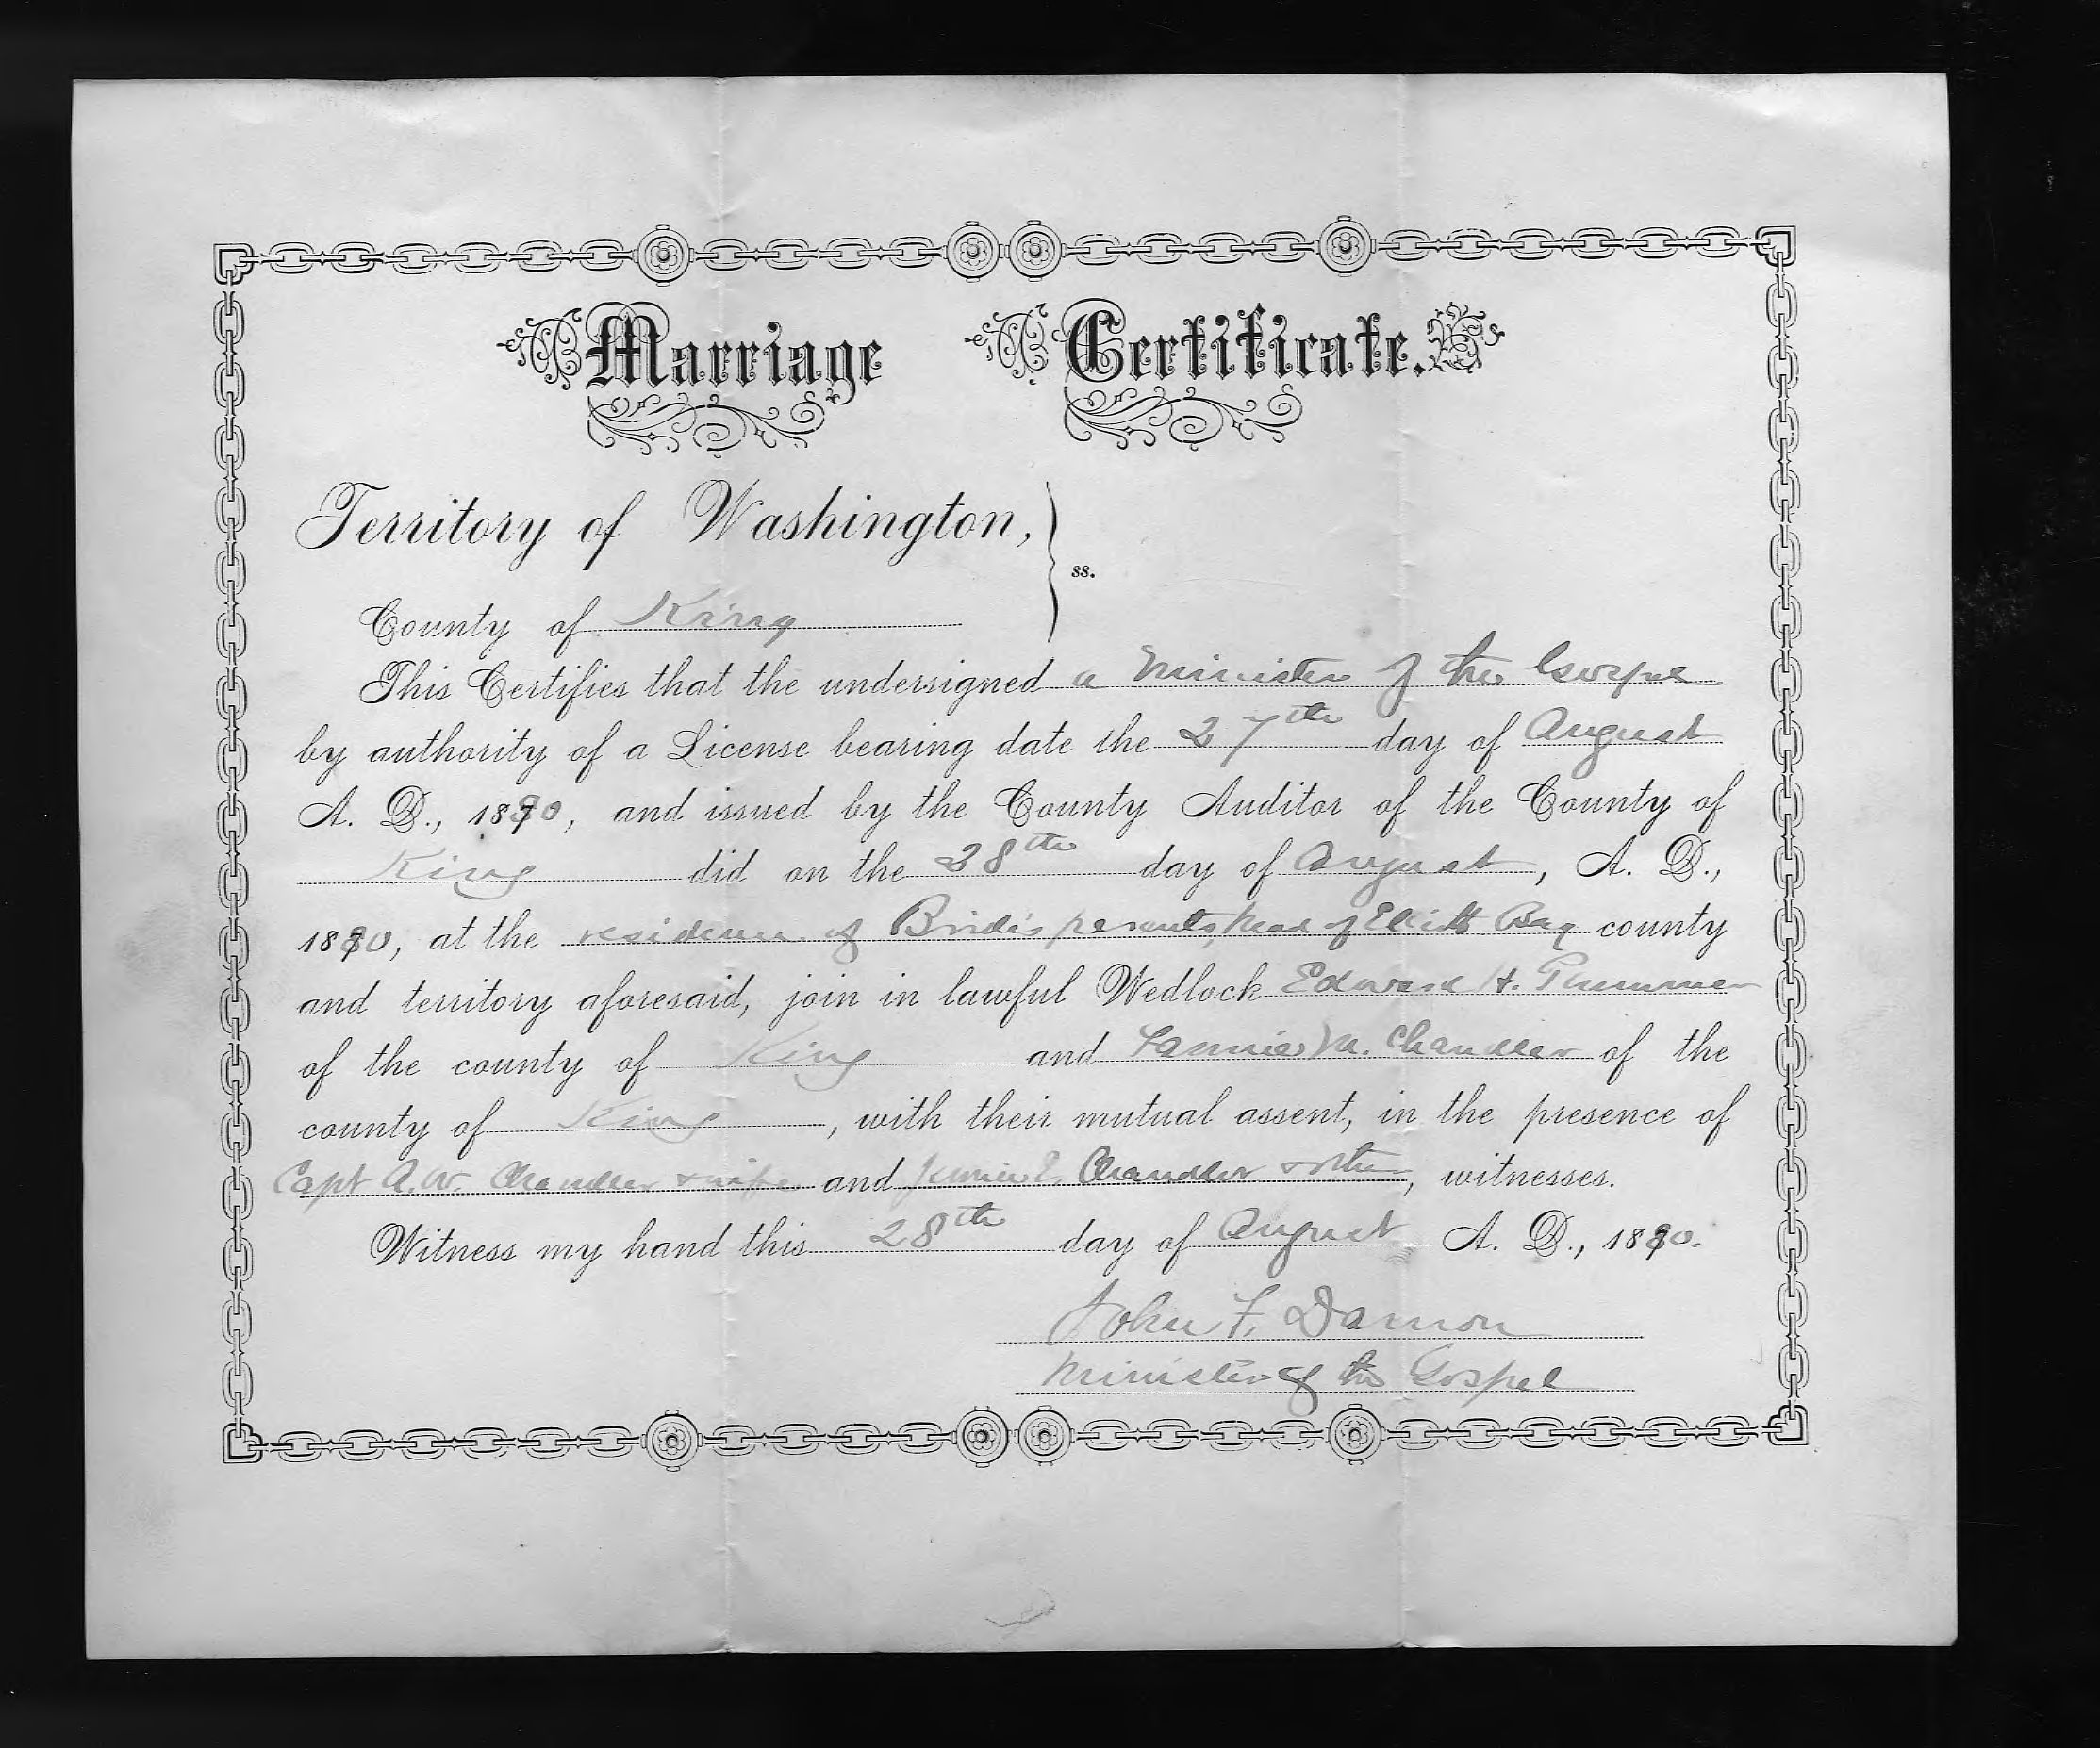 Marriage Certificate.
Territory of Washington, } ss.
County of King
This Certifies that the undersigned a Minister of the Gospel
by authority of a License bearing date the 27th day of August
A. D., 1880, and issued by the County Auditor of the County of
King did on the 28th day of August, A. D.,
1880, at the residence of Bride's parents, head of Elliott Bay county
and territory aforesaid, join in lawful Wedlock Edward H. Plummer
of the county of King and Fannie M. Chandler of the
county of King, with their mutual assent, in the presence of
Capt A. W. Chandler & wife and Jennie E. Chandler & other, witnesses.
Witness my hand this 28th day of August A. D., 1880.
John F. Damon
Minister of the Gospel